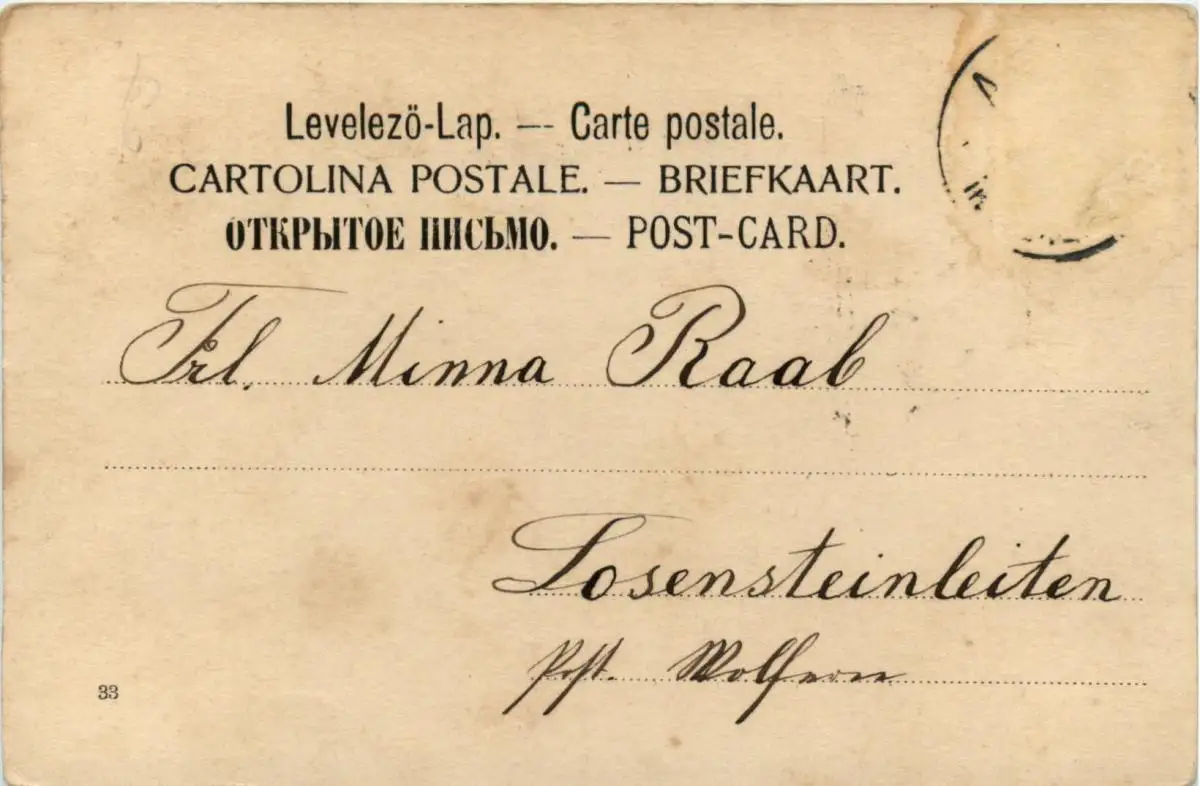 Levelezö-Lap. — Carte postale.
CARTOLINA POSTALE. — BRIEFKAART.
ОТКРЫТОЕ ПИСЬМО. — POST-CARD.
Frl. Minna Raab
Losensteinleiten
Post. Wolfern
33